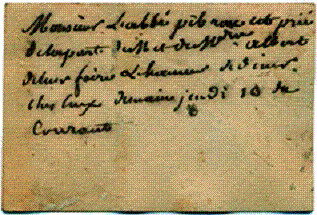 Monsieur L'abbé pibrour est prié
de la part de M et de Mme albert
de leur faire L'honneur de diner
chez Eux demain jeudi 10 du
Courant